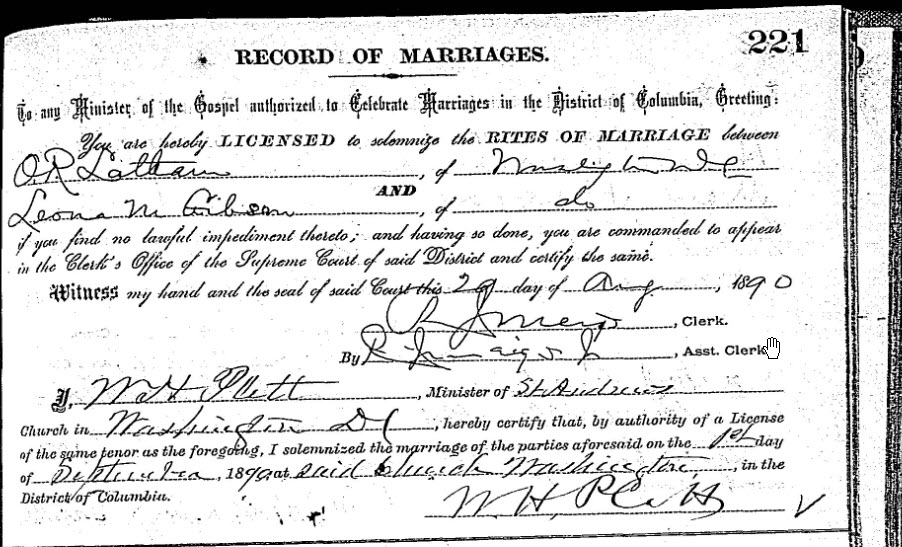 221
RECORD OF MARRIAGES.
To any Minister of the Gospel authorized to Celebrate Marriages in the District of Columbia, Greeting:
You are hereby LICENSED to solemnize the RITES OF MARRIAGE between
O R Latham, of Washington D C
AND
Leona M Gibson, of do
if you find no lawful impediment thereto; and having so done, you are commanded to appear
in the Clerk's Office of the Supreme Court of said District and certify the same.
Witness my hand and the seal of said Court this 29 day of Aug, 1890
R J Meigs, Clerk.
By R J Meigs Jr, Asst. Clerk
I, W H Plett, Minister of St Andrews
Church in Washington D C, hereby certify that, by authority of a License
of the same tenor as the foregoing, I solemnized the marriage of the parties aforesaid on the 1st day
of September, 1890, at said Church Washington, in the
District of Columbia.
W. H.